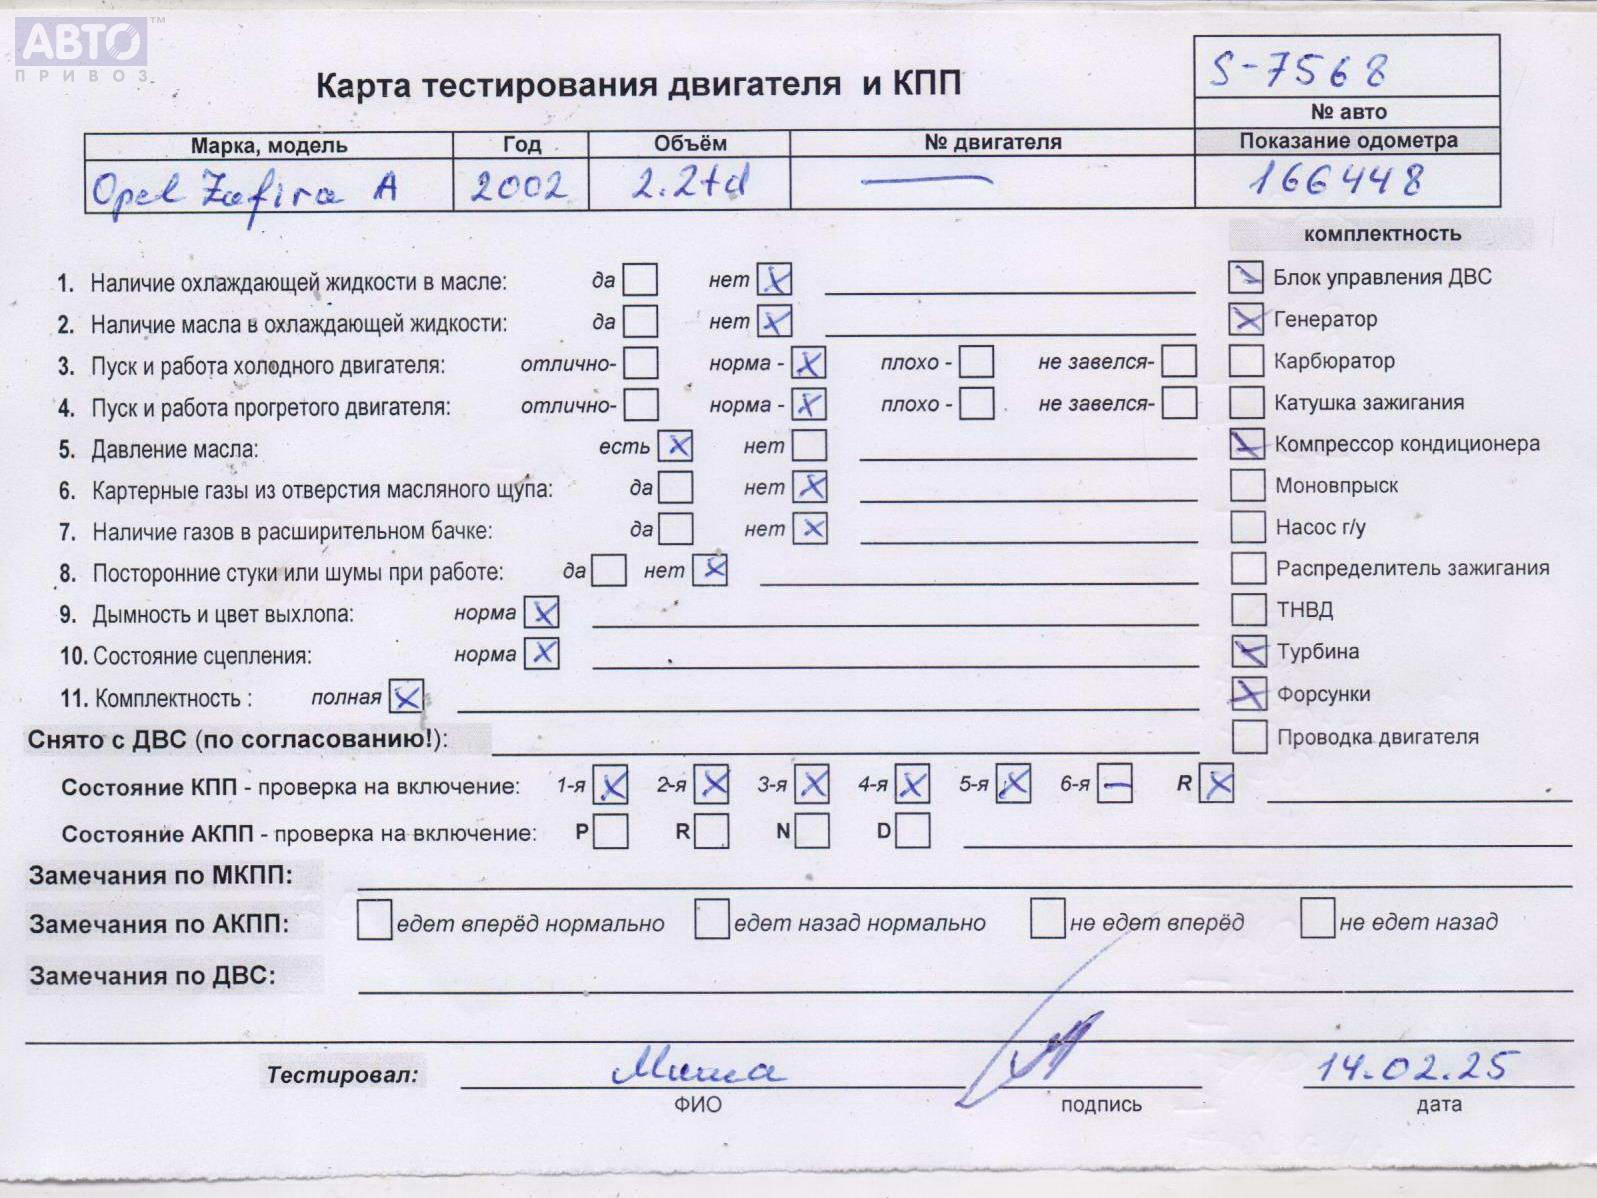 АВТО™
ПРИВОЗ
S-7568
Карта тестирования двигателя и КПП
№ авто
Марка, модель Год Объём № двигателя Показание одометра
Opel Zafira A 2002 2.2td — 166448
комплектность
1. Наличие охлаждающей жидкости в масле: да нет
Блок управления ДВС
2. Наличие масла в охлаждающей жидкости: да нет
Генератор
3. Пуск и работа холодного двигателя: отлично- норма - плохо - не завелся-
Карбюратор
4. Пуск и работа прогретого двигателя: отлично- норма - плохо - не завелся-
Катушка зажигания
5. Давление масла: есть нет
Компрессор кондиционера
6. Картерные газы из отверстия масляного щупа: да нет
Моновпрыск
7. Наличие газов в расширительном бачке: да нет
Насос г/у
8. Посторонние стуки или шумы при работе: да нет
Распределитель зажигания
9. Дымность и цвет выхлопа: норма
ТНВД
10. Состояние сцепления: норма
Турбина
11. Комплектность : полная
Форсунки
Снято с ДВС (по согласованию!):
Проводка двигателя
Состояние КПП - проверка на включение: 1-я 2-я 3-я 4-я 5-я 6-я R
Состояние АКПП - проверка на включение: P R N D
Замечания по МКПП:
Замечания по АКПП: едет вперёд нормально едет назад нормально не едет вперёд не едет назад
Замечания по ДВС:
Тестировал: Миша 14.02.25
ФИО подпись дата